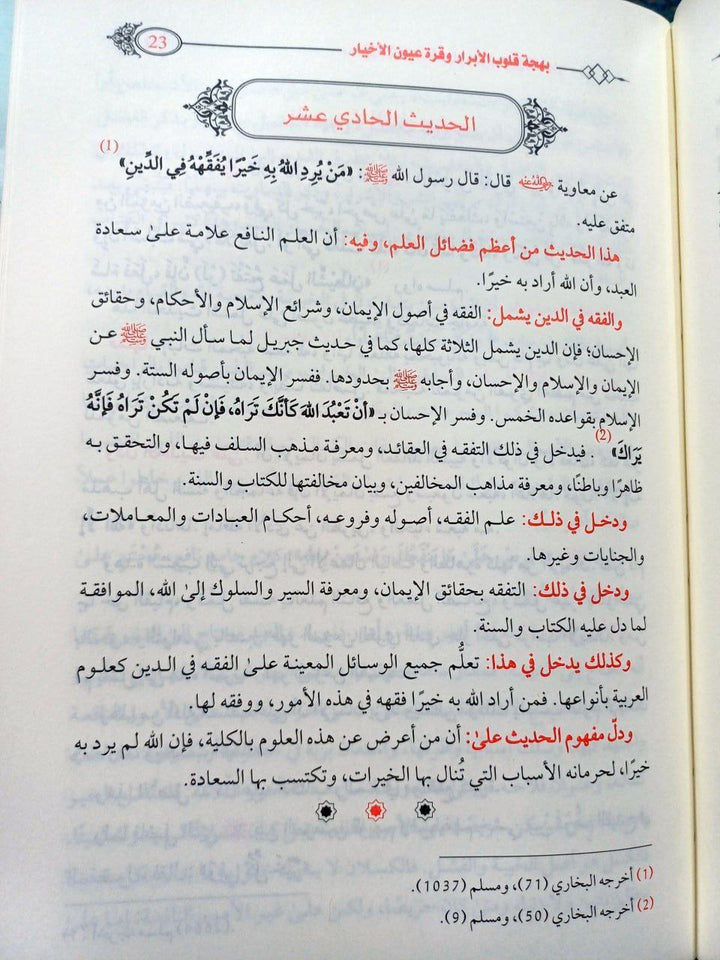 23
بهجة قلوب الأبرار وقرة عيون الأخيار
الحديث الحادي عشر
عن معاوية رضي الله عنه قال: قال رسول الله ﷺ: «مَنْ يُرِدِ اللهُ بِهِ خَيْرًا يُفَقِّهْهُ فِي الدِّينِ» (1)
متفق عليه.
هذا الحديث من أعظم فضائل العلم، وفيه: أن العلم النافع علامة علىٰ سعادة
العبد، وأن الله أراد به خيرًا.
والفقه في الدين يشمل: الفقه في أصول الإيمان، وشرائع الإسلام والأحكام، وحقائق
الإحسان؛ فإن الدين يشمل الثلاثة كلها، كما في حديث جبريل لما سأل النبي ﷺ عن
الإيمان والإسلام والإحسان، وأجابه ﷺ بحدودها. ففسر الإيمان بأصوله الستة. وفسر
الإسلام بقواعده الخمس. وفسر الإحسان بـ «أَنْ تَعْبُدَ اللهَ كَأَنَّكَ تَرَاهُ، فَإِنْ لَمْ تَكُنْ تَرَاهُ فَإِنَّهُ
يَرَاكَ» (2). فيدخل في ذلك التفقه في العقائد، ومعرفة مذهب السلف فيها، والتحقق به
ظاهرًا وباطنًا، ومعرفة مذاهب المخالفين، وبيان مخالفتها للكتاب والسنة.
ودخل في ذلك: علم الفقه، أصوله وفروعه، أحكام العبادات والمعاملات،
والجنايات وغيرها.
ودخل في ذلك: التفقه بحقائق الإيمان، ومعرفة السير والسلوك إلىٰ الله، الموافقة
لما دل عليه الكتاب والسنة.
وكذلك يدخل في هذا: تعلُّم جميع الوسائل المعينة علىٰ الفقه في الدين كعلوم
العربية بأنواعها. فمن أراد الله به خيرًا فقهه في هذه الأمور، ووفقه لها.
ودلّ مفهوم الحديث علىٰ: أن من أعرض عن هذه العلوم بالكلية، فإن الله لم يرد به
خيرًا، لحرمانه الأسباب التي تُنال بها الخيرات، وتكتسب بها السعادة.
(1) أخرجه البخاري (71)، ومسلم (1037).
(2) أخرجه البخاري (50)، ومسلم (9).